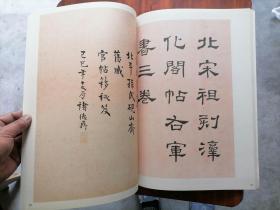 北宋祖刻淳
化閣帖右軍
書三卷
北平孫氏硯山齋
舊藏
帖秘笈
己巳年褚德彝